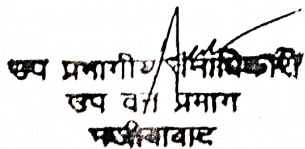 उप प्रभागीय वनाधिकारी
उप वन प्रभाग
नजीबाबाद